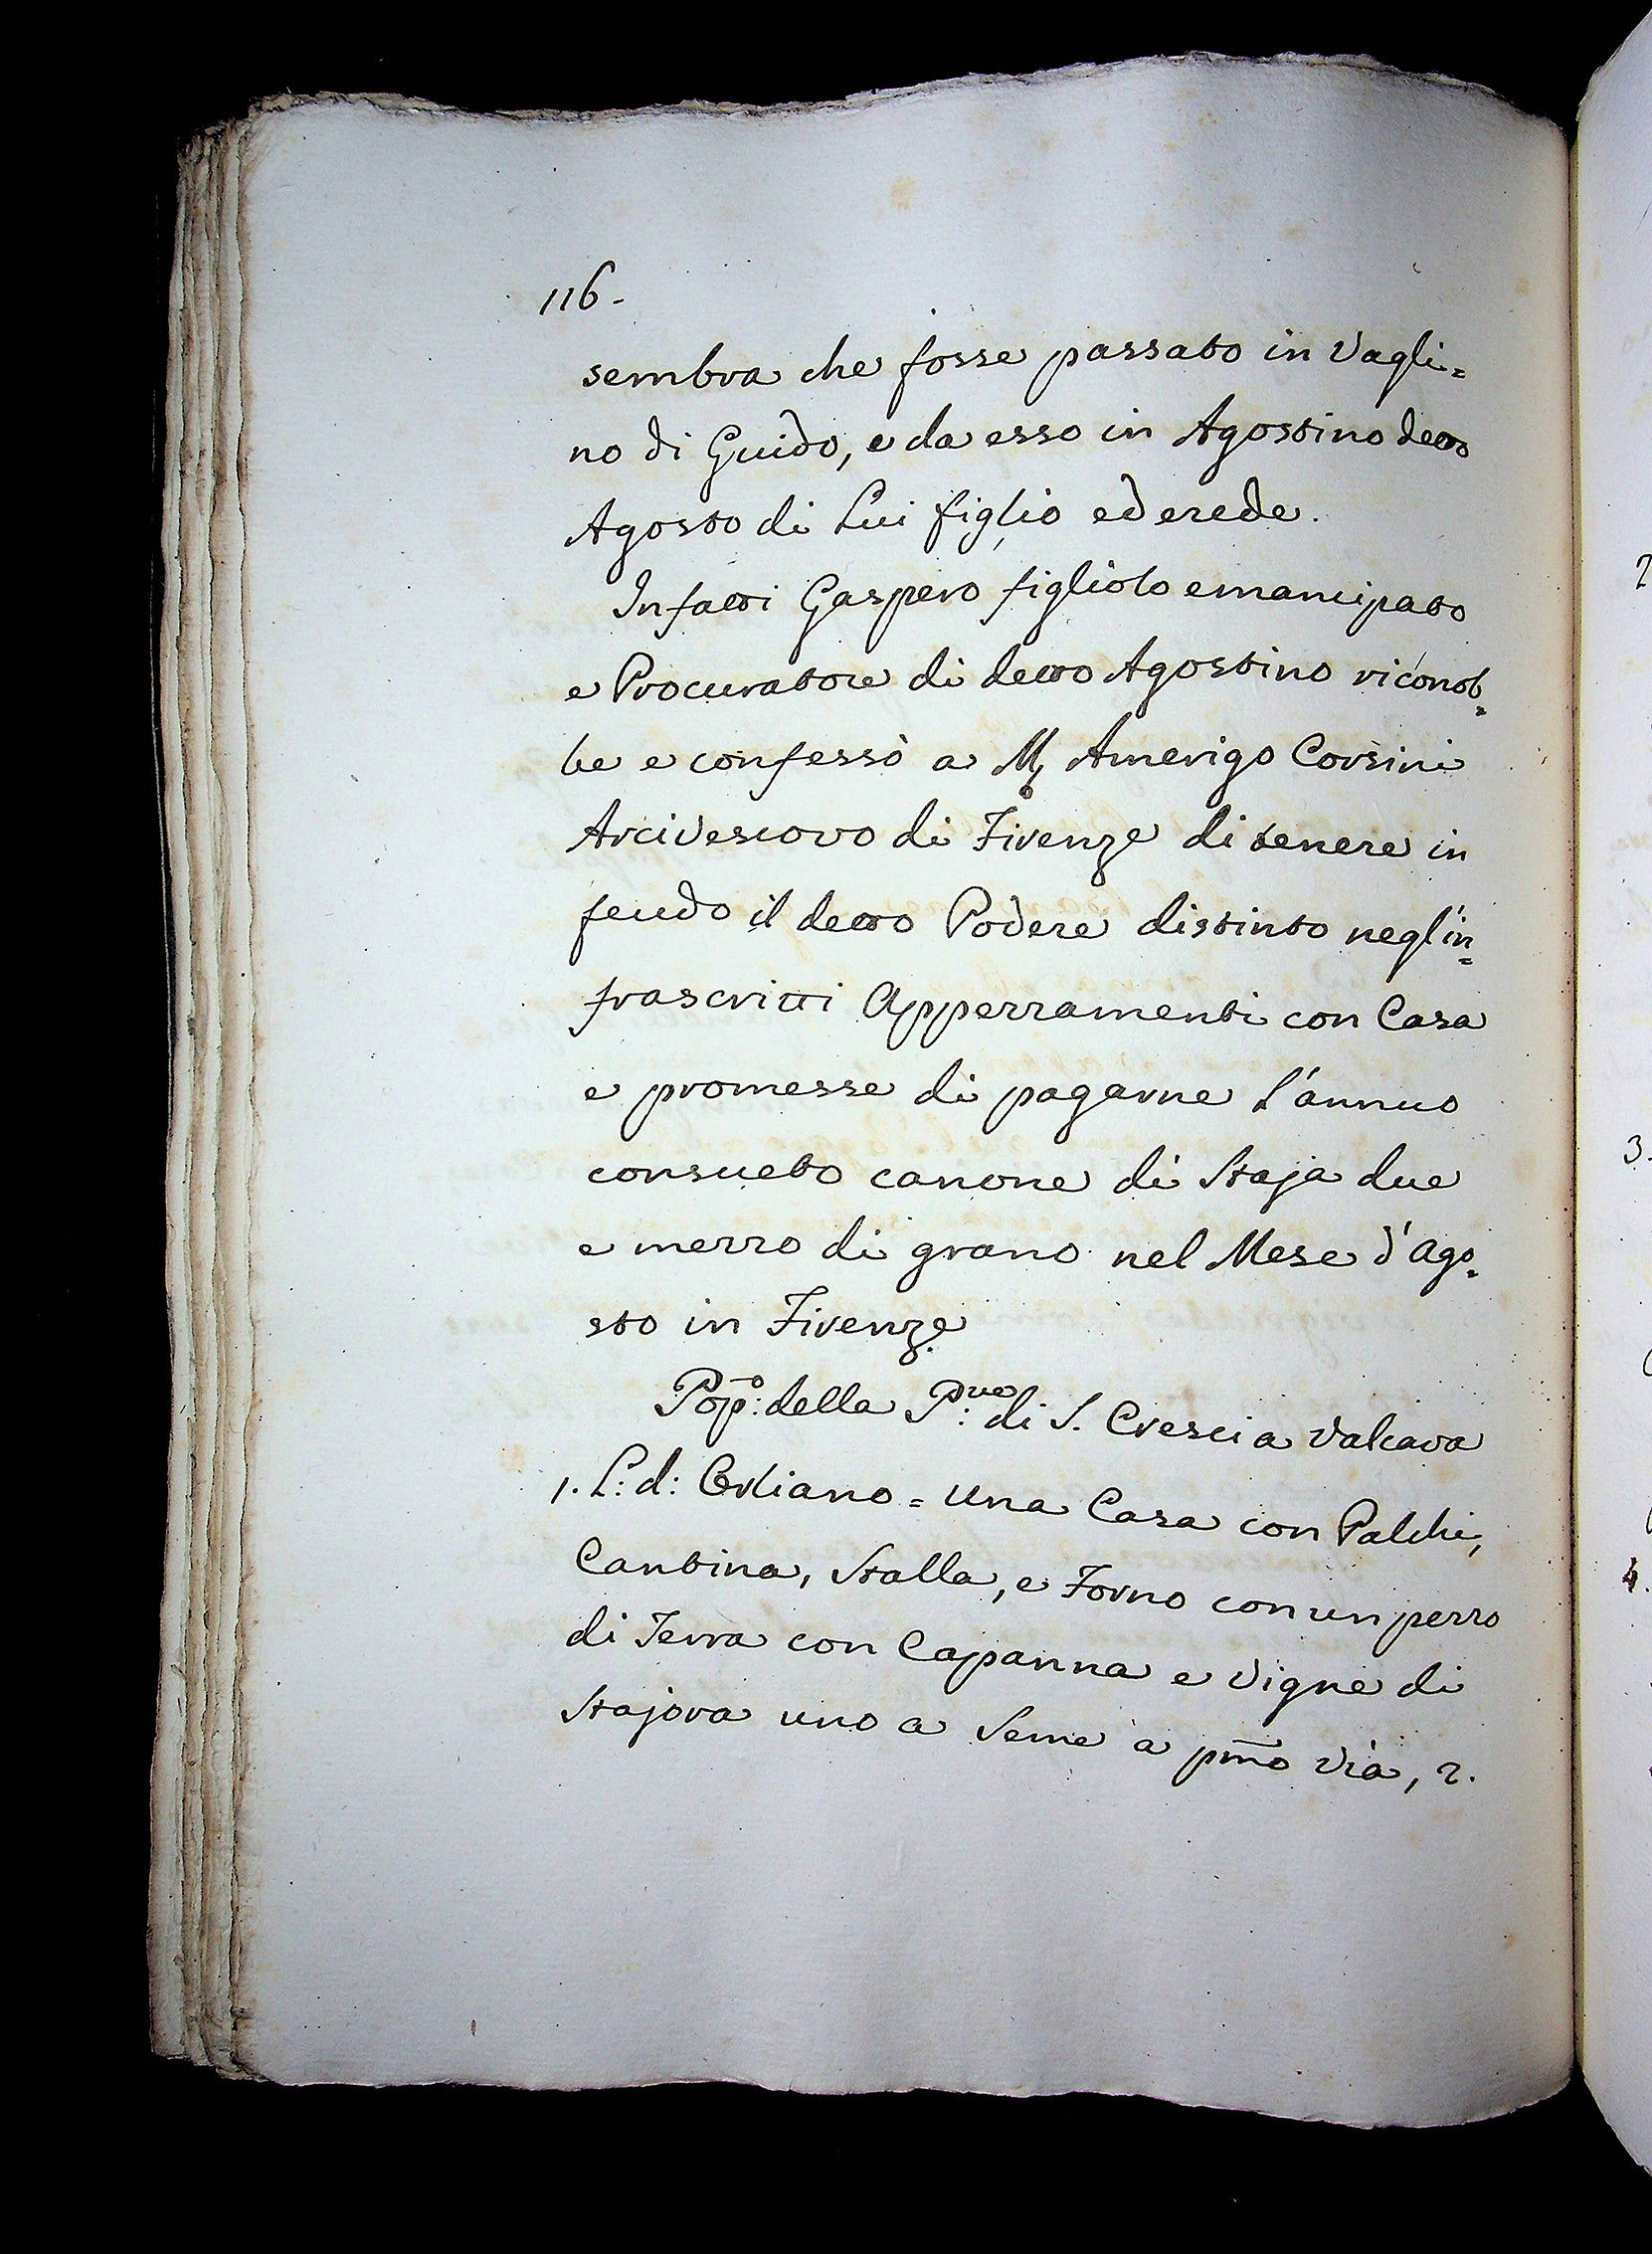 116.
sembra che fosse passato in Vagli=
no di Guido, e da esso in Agostino detto
Agosto di Lui figlio ed erede.
Infatti Gaspero figliolo emancipato
e Procuratore di detto Agostino riconob=
be e confessò a M. Amerigo Corsini
Arcivescovo di Firenze di tenere in
feudo il detto Podere distinto negl'in=
frascritti Appezzamenti con Casa
e promesse di pagarne l'annuo
consueto canone di Staja due
e mezzo di grano nel Mese d'Ago=
sto in Firenze
Pop:o della P:ve di S. Cresci a Valcava
1. L: d: = Una Casa con Palchi,
Cantina, Stalla, e Forno con un pezzo
di Terra con Capanna e Vigne di
Stajora uno a Seme a pmo Via, 2.
3.
4.